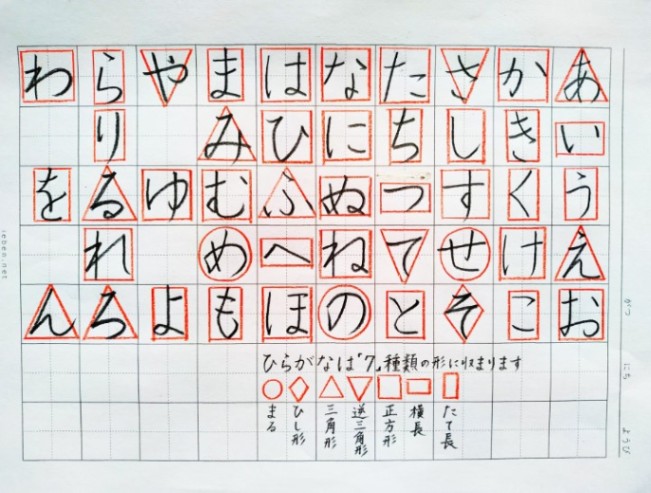 あいうえお
かきくけこ
さしすせそ
たちつてと
なにぬねの
はひふへほ
まみむめも
やゆよ
らりるれろ
わをん
ひらがなは「7」種類の形に収まります
まる
ひし形
三角形
逆三角形
正方形
横長
たて長
がつ にち ようび
ieben.net